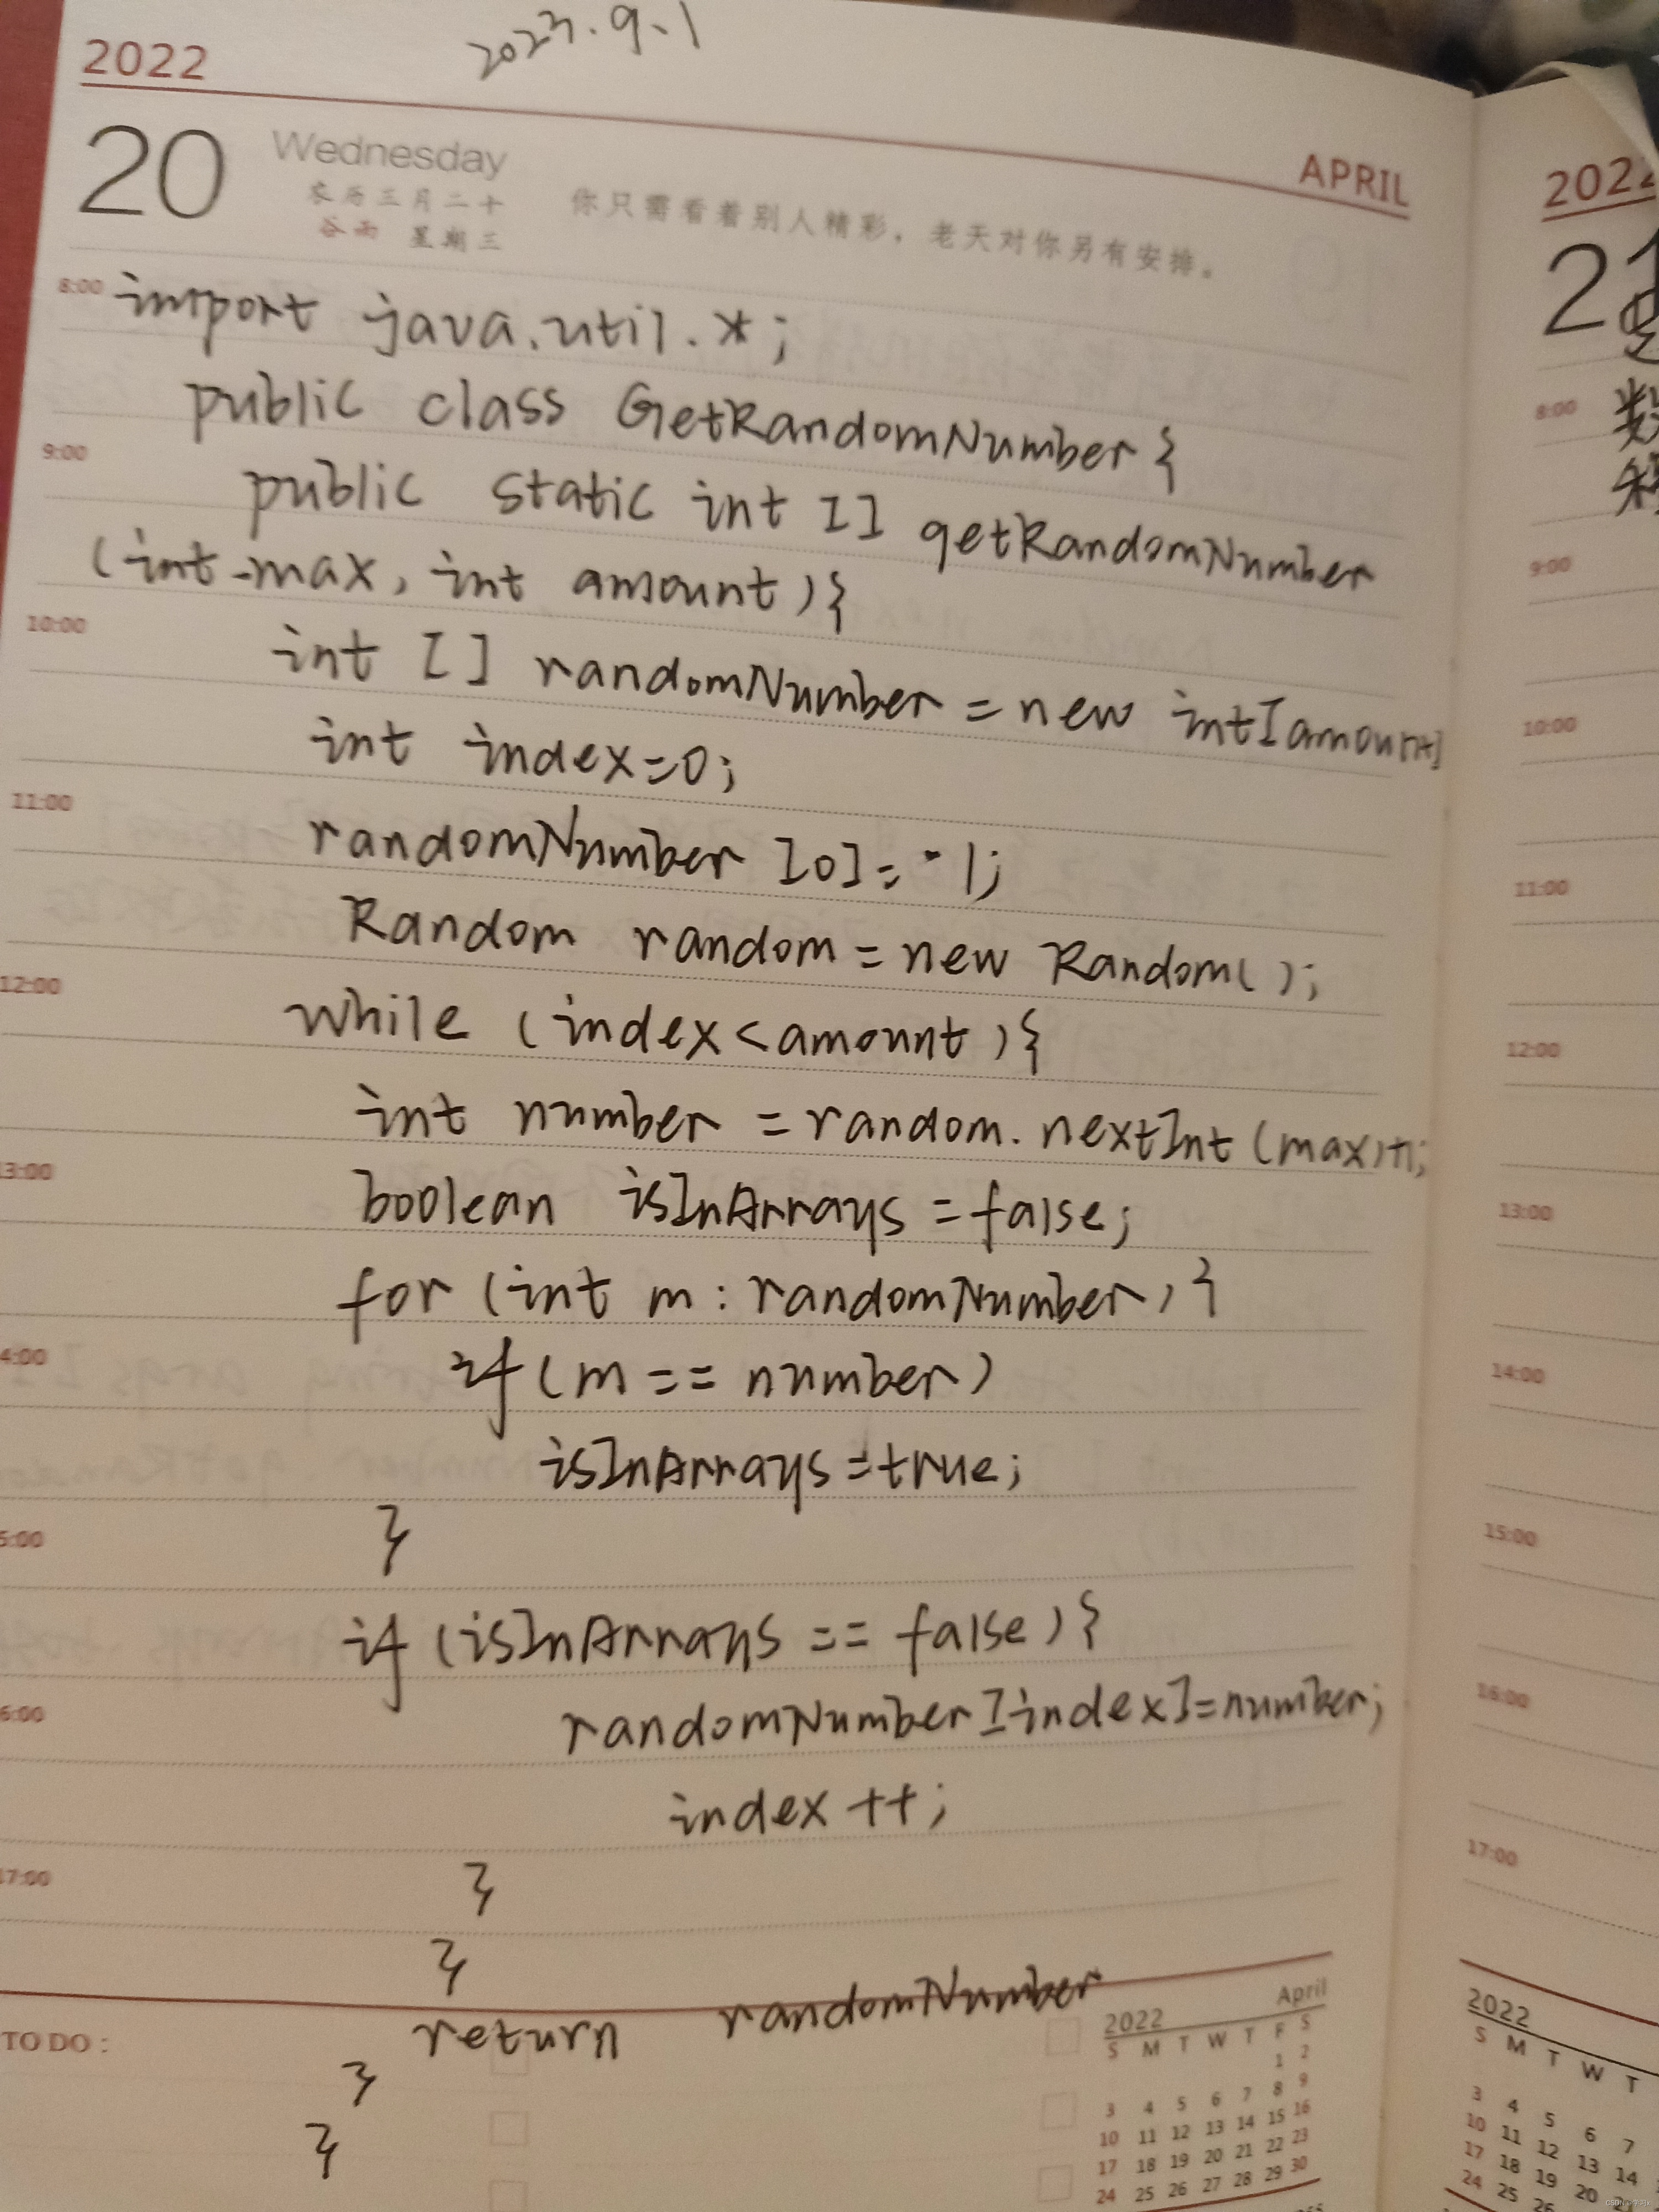 2023.9.1
2022
APRIL
20
Wednesday
农历三月二十
谷雨 星期三
你只需看着别人精彩，老天对你另有安排。
8:00
import java.util.*;
public class GetRandomNumber{
9:00
public static int [] getRandomNumber
(int max, int amount){
10:00
int [] randomNumber = new int[amount]
int index=0;
11:00
randomNumber [0]= -1;
Random random = new Random();
12:00
while (index<amount){
int number = random.nextInt(max)+1;
13:00
boolean isInArrays = false;
for (int m : randomNumber){
4:00
if(m == number)
isInArrays=true;
5:00
}
if (isInArrays == false){
6:00
randomNumber[index]=number;
index ++;
17:00
}
}
return randomNumber
TO DO :
}
}
2022 April
S M T W T F S
1 2
3 4 5 6 7 8 9
10 11 12 13 14 15 16
17 18 19 20 21 22 23
24 25 26 27 28 29 30
2022
8:00
数
9:00
10:00
11:00
12:00
13:00
14:00
15:00
16:00
17:00
2022
S M T W T
3 4 5 6 7
10 11 12 13 14
17 18 19 20 21
24 25 26